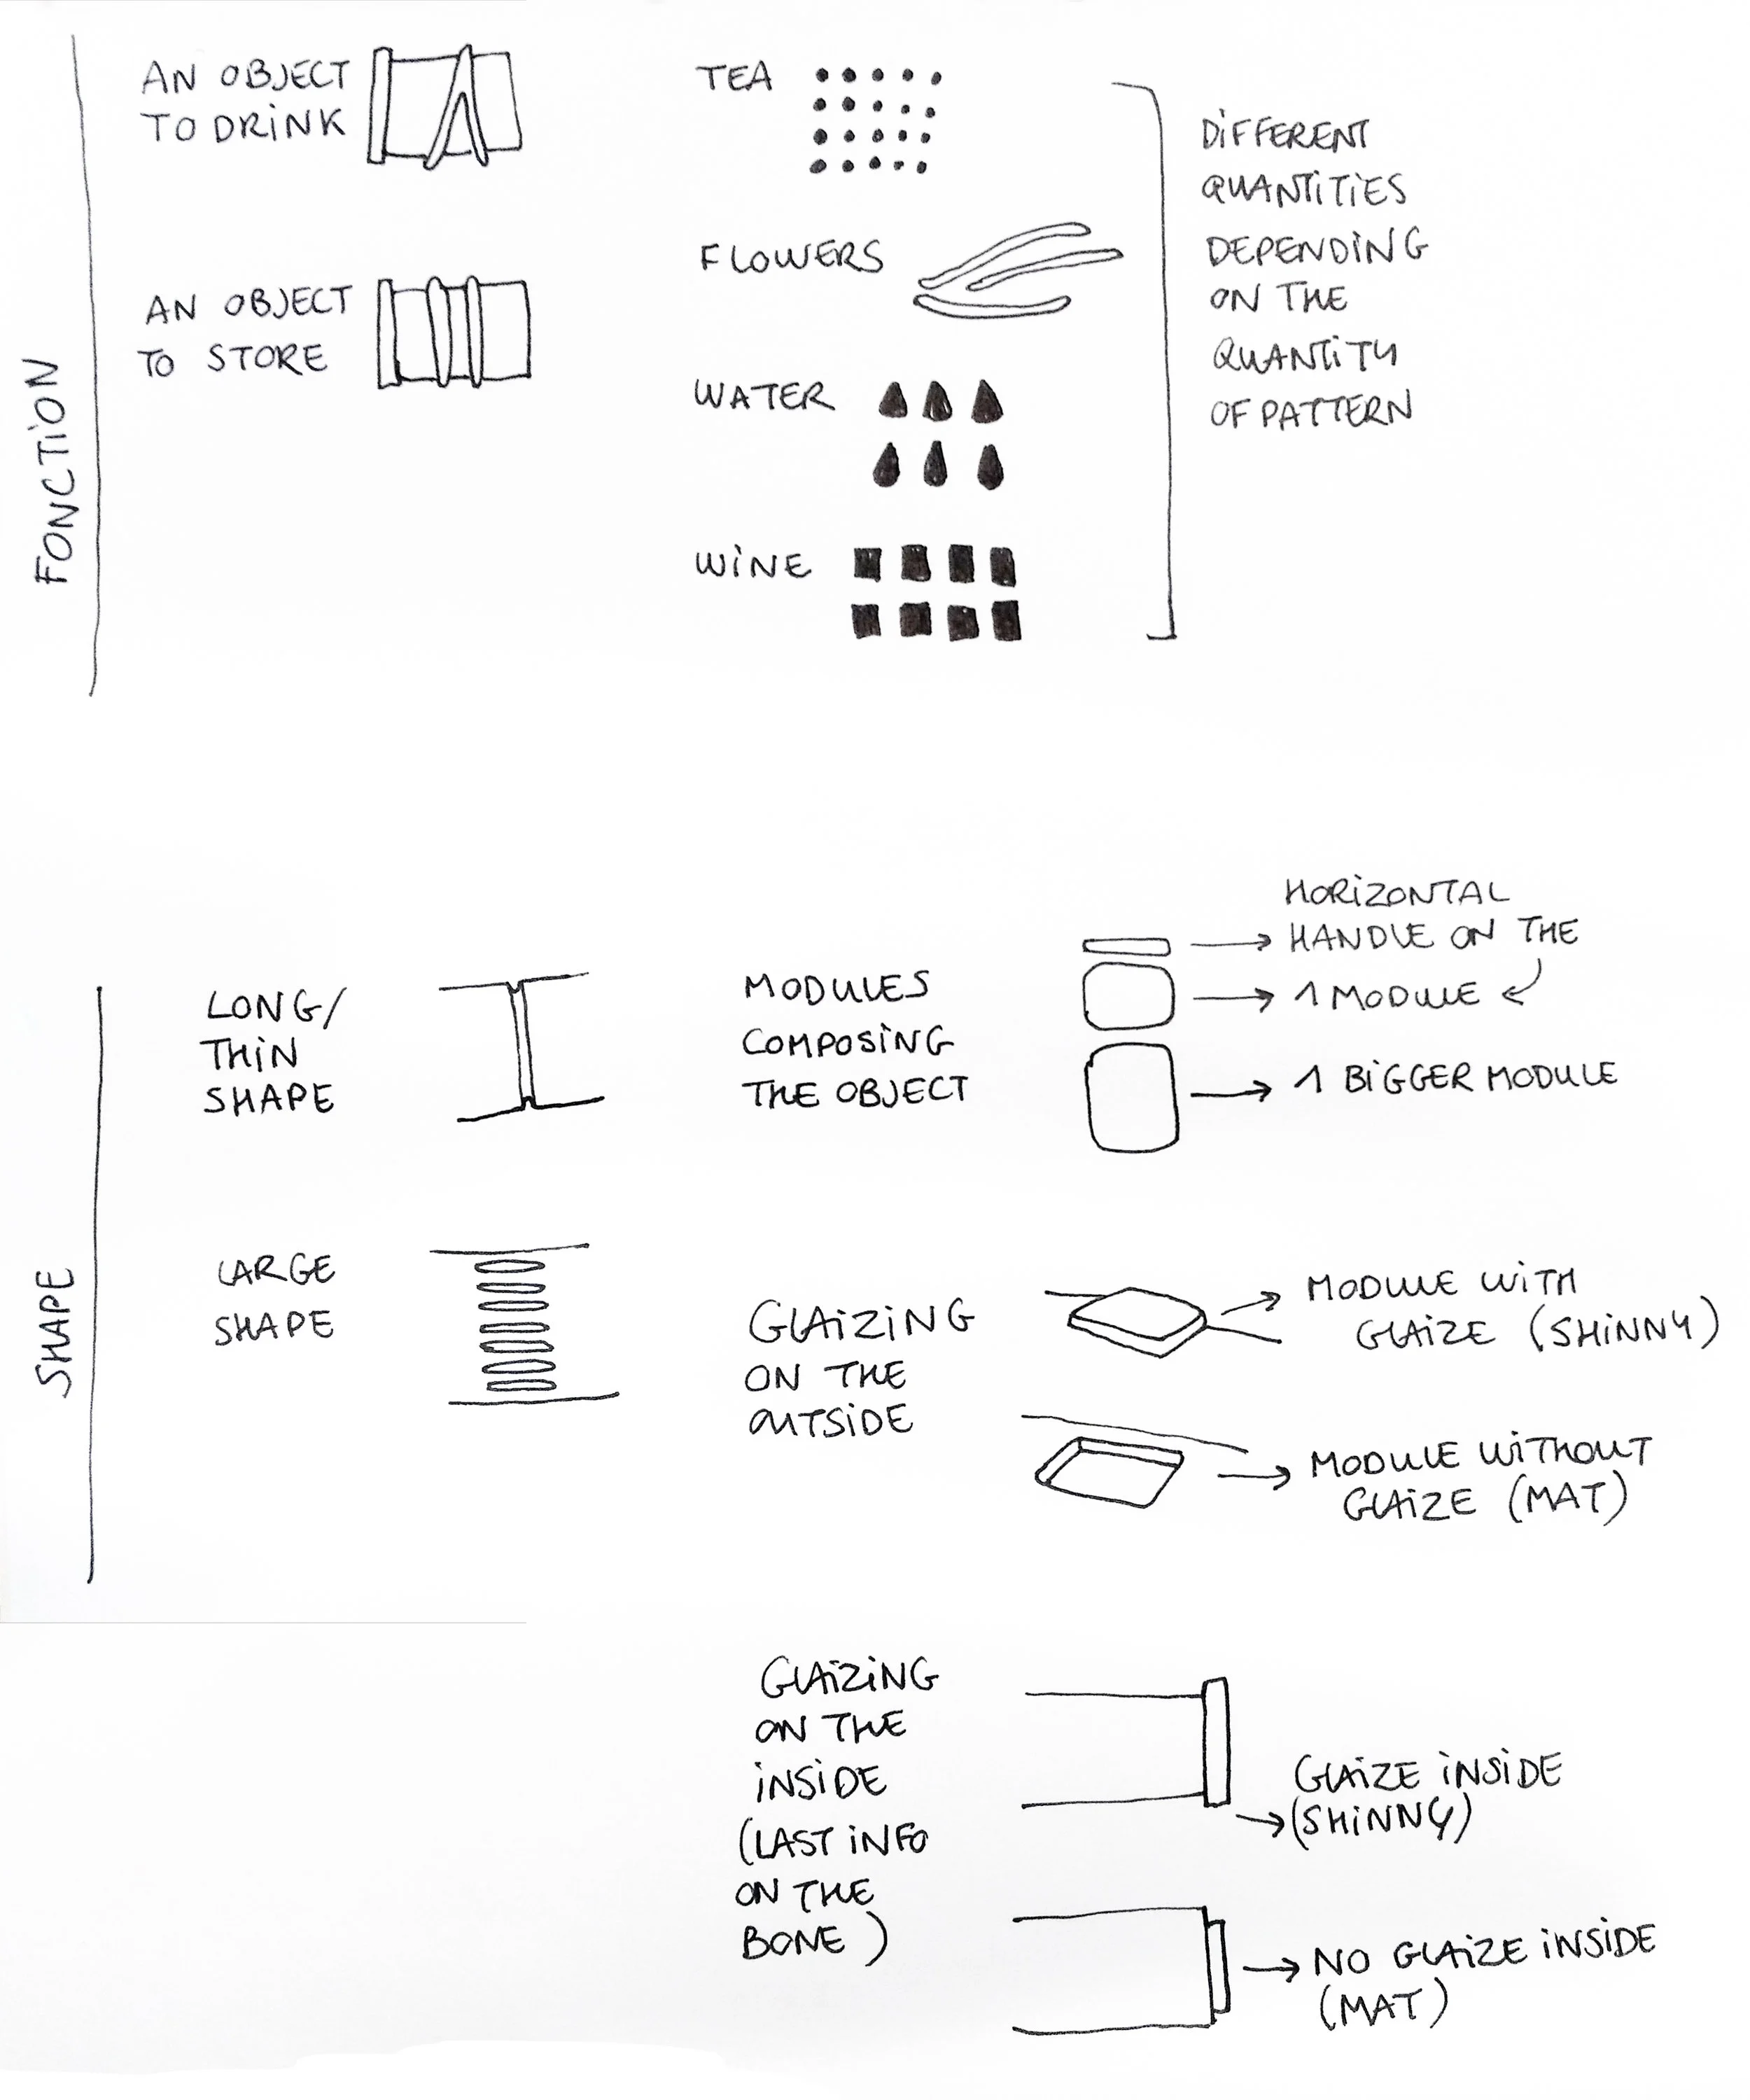 FONCTION
AN OBJECT
TO DRINK
AN OBJECT
TO STORE
TEA
FLOWERS
WATER
WINE
DIFFERENT
QUANTITIES
DEPENDING
ON THE
QUANTITY
OF PATTERN
SHAPE
LONG/
THIN
SHAPE
LARGE
SHAPE
MODULES
COMPOSING
THE OBJECT
HORIZONTAL
HANDLE ON THE
1 MODULE
1 BIGGER MODULE
GLAIZING
ON THE
OUTSIDE
MODULE WITH
GLAIZE (SHINNY)
MODULE WITHOUT
GLAIZE (MAT)
GLAIZING
ON THE
INSIDE
(LAST INFO
ON THE
BONE)
GLAIZE INSIDE
(SHINNY)
NO GLAIZE INSIDE
(MAT)